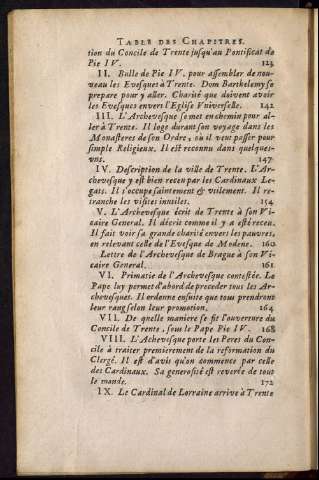 TABLE DES CHAPITRES.
tion du Concile de Trente jusqu'au Pontificat de
Pie IV. 123
II. Bulle de Pie IV. pour assembler de nou-
veau les Evesques à Trente. Dom Barthelemy se
prepare pour y aller. Charité que doivent avoir
les Evesques envers l'Eglise Vniverselle. 142
III. L'Archevesque se met en chemin pour al-
ler à Trente. Il loge durant son voyage dans les
Monasteres de son Ordre, où il veut passer pour
simple Religieux. Il est reconnu dans quelques-
vns. 147
IV. Description de la ville de Trente. L'Ar-
chevesque y est bien receu par les Cardinaux Le-
gats. Il s'occupe saintement & vtilement. Il re-
tranche les visites inutiles. 154
V. L'Archevesque écrit de Trente à son Vi-
caire General. Il décrit comme il y a esté receu.
Il fait voir sa grande charité envers les pauvres,
en relevant celle de l'Evesque de Modene. 160
Lettre de l'Archevesque de Brague à son Vi-
caire General. 161
VI. Primatie de l'Archevesque contestée. Le
Pape luy permet d'abord de preceder tous les Ar-
chevesques. Il ordonne ensuite que tous prendront
leur rang selon leur promotion. 164
VII. De quelle maniere se fit l'ouverture du
Concile de Trente, sous le Pape Pie IV. 168
VIII. L'Achevesque porte les Peres du Con-
cile à traiter premierement de la reformation du
Clergé. Il est d'avis qu'on commence par celle
des Cardinaux. Sa generosité est reverée de tout
le monde. 172
IX. Le Cardinal de Lorraine arrive à Trente